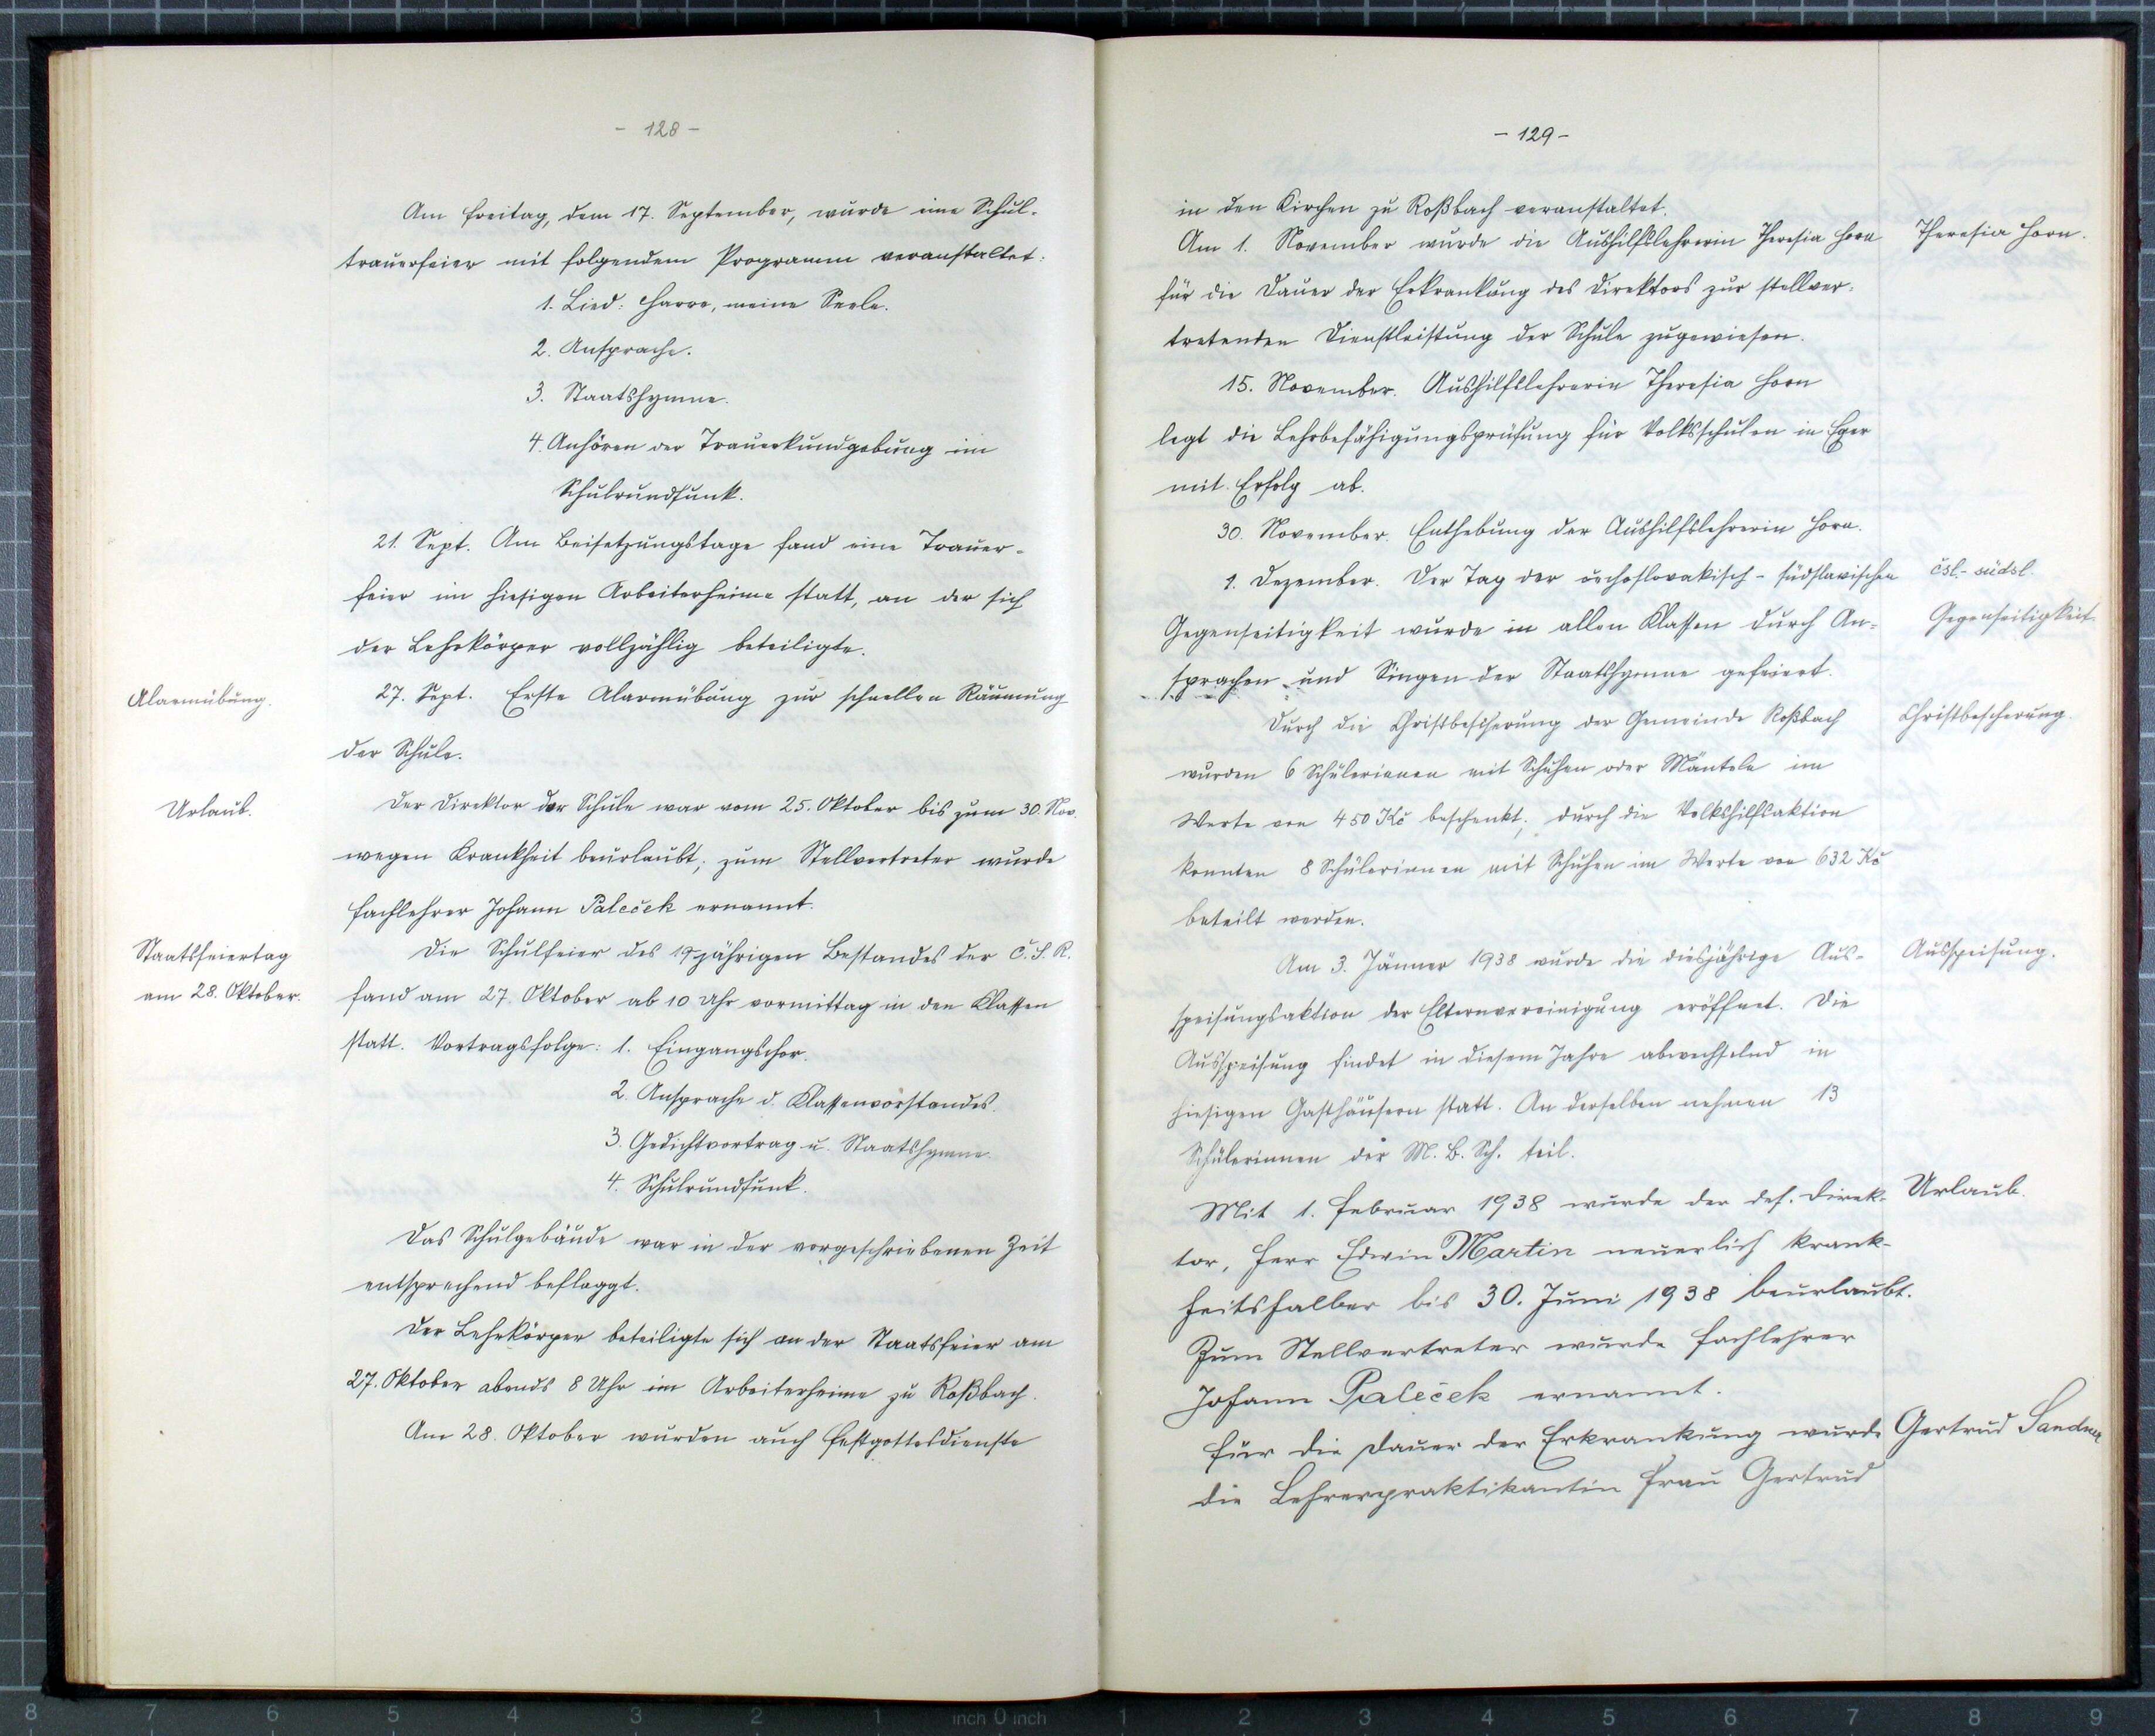 - 128 -
Am Freitag, dem 17. September, wurde eine Schul-
trauerfeier mit folgendem Programm veranstaltet:
1. Lied: Harre, meine Seele.
2. Ansprache.
3. Staatshymne.
4. Anhören der Trauerkundgebung im
Schulrundfunk.
21. Sept. Am Beisetzungstage fand eine Trauer-
feier im hiesigen Arbeiterheime statt, an der sich
der Lehrkörper vollzählig beteiligte.
Alarmübung.
27. Sept. Erste Alarmübung zur schnellen Räumung
der Schule.
Urlaub.
Der Direktor der Schule war vom 25. Oktober bis zum 30. Nov.
wegen Krankheit beurlaubt; zum Stellvertreter wurde
Fachlehrer Johann Paleček ernannt.
Staatsfeiertag
am 28. Oktober.
Die Schulfeier des 19jährigen Bestandes der Č. S. R.
fand am 27. Oktober ab 10 Uhr vormittag in den Klassen
statt. Vortragsfolge: 1. Eingangschor.
2. Ansprache d. Klassenvorstandes.
3. Gedichtvortrag u. Staatshymne.
4. Schulrundfunk.
Das Schulgebäude war in der vorgeschriebenen Zeit
entsprechend beflaggt.
Der Lehrkörper beteiligte sich an der Staatsfeier am
27. Oktober abends 8 Uhr im Arbeiterheime zu Roßbach.
Am 28. Oktober wurden auch Festgottesdienste
- 129 -
in den Kirchen zu Roßbach veranstaltet.
Am 1. November wurde die Aushilfslehrerin Theresia Horn
Theresia Horn.
für die Dauer der Erkrankung des Direktors zur stellver-
tretenden Dienstleistung der Schule zugewiesen.
15. November. Aushilfslehrerin Theresia Horn
legt die Lehrbefähigungsprüfung für Volksschulen in Eger
mit Erfolg ab.
30. November. Enthebung der Aushilfslehrerin Horn.
1. Dezember. Der Tag der čechoslovakisch-südslavischen
čsl.-südsl.
Gegenseitigkeit
Gegenseitigkeit wurde in allen Klassen durch An-
sprachen und Singen der Staatshymne gefeiert.
Durch die Christbescherung der Gemeinde Roßbach
Christbescherung.
wurden 6 Schülerinnen mit Schuhen oder Mänteln im
Werte von 450 Kč beschenkt; durch die Volkshilfsaktion
konnten 8 Schülerinnen mit Schuhen im Werte von 632 Kč
beteilt werden.
Am 3. Jänner 1938 wurde die diesjährige Aus-
Ausspeisung.
speisungsaktion der Elternvereinigung eröffnet. Die
Ausspeisung findet in diesem Jahre abwechselnd in
hiesigen Gasthäusern statt. An derselben nehmen 13
Schülerinnen der M. B. Sch. teil.
Mit 1. Februar 1938 wurde der def. Direk-
Urlaub.
tor, Herr Edwin Martin neuerlich krank-
heitshalber bis 30. Juni 1938 beurlaubt.
Zum Stellvertreter wurde Fachlehrer
Johann Paleček ernannt.
Für die Dauer der Erkrankung wurde
Gertrud Sandner
die Lehrerpraktikantin Frau Gertrud
8 7 6 5 4 3 2 1 inch 0 inch 1 2 3 4 5 6 7 8 9